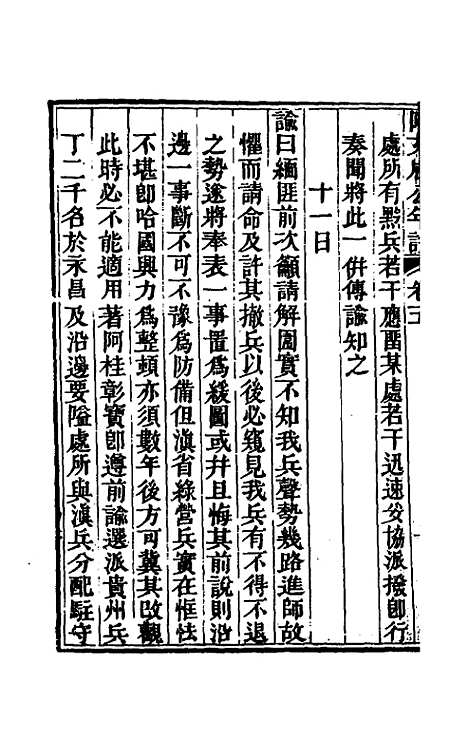 處所有黔兵若干應團某處若干迅速妥協派撥卽行
奏聞將此一併傳諭知之
十一日
諭曰緬匪前次籲請解圍實不知我兵聲勢幾路進師故
懼而請命及許其撤兵以後必窺見我兵有不得不退
之勢遂將奉表一事置爲緩圖或幷且悔其前說則沿
邊一事斷不可不豫爲防備但滇省綠營兵實在恇怯
不堪卽哈國興力爲整頓亦須數年後方可冀其改觀
此時必不能適用著阿桂彰寶卽遵前諭選派貴州兵
丁二千名於永昌及沿邊要隘處所與滇兵分配駐守